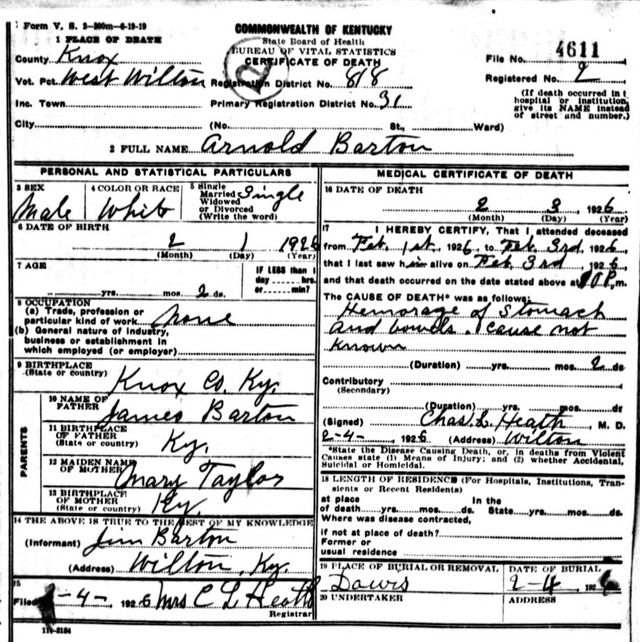 Form V. S. 2-200m-6-19-19
COMMONWEALTH OF KENTUCKY
State Board of Health
BUREAU OF VITAL STATISTICS
CERTIFICATE OF DEATH
1 PLACE OF DEATH
County Knox
Vot. Pct. West Wilton Registration District No. 818
Inc. Town Primary Registration District No. 31
File No. 4611
Registered No. 2
(If death occurred in
hospital or institution,
give its NAME instead
of street and number.)
City (No. St., Ward)
2 FULL NAME Arnold Barton
PERSONAL AND STATISTICAL PARTICULARS
3 SEX
Male
4 COLOR OR RACE
White
5 Single
Married
Widowed
or Divorced
(Write the word)
Single
6 DATE OF BIRTH
2 1 1926
(Month) (Day) (Year)
7 AGE
yrs. mos. 2 ds.
IF LESS than 1
day hrs.
or min?
8 OCCUPATION
(a) Trade, profession or
particular kind of work none
(b) General nature of industry,
business or establishment in
which employed (or employer)
9 BIRTHPLACE
(State or country) Knox Co. Ky.
PARENTS
10 NAME OF
FATHER James Barton
11 BIRTHPLACE
OF FATHER
(State or country) Ky.
12 MAIDEN NAME
OF MOTHER Mary Taylor
13 BIRTHPLACE
OF MOTHER
(State or country) Ky.
14 THE ABOVE IS TRUE TO THE BEST OF MY KNOWLEDGE
(Informant) Jim Barton
(Address) Wilton, Ky.
15
Filed -4- 1926 Mrs C L Heath
Registrar
11-3184
MEDICAL CERTIFICATE OF DEATH
16 DATE OF DEATH
2 3 1926
(Month) (Day) (Year)
17 I HEREBY CERTIFY, That I attended deceased
from Feb. 1st, 1926, to Feb. 3rd, 1926,
that I last saw him alive on Feb. 3rd, 1926,
and that death occurred on the date stated above at P.m.
The CAUSE OF DEATH* was as follows:
Hemorage of Stomach
and bowels. Cause not
known
(Duration) yrs. mos. 2 ds
Contributory
(Secondary)
(Duration) yrs. mos. ds
(Signed) Chas. L. Heath, M. D.
2-4-, 1926 (Address) Wilton
*State the Disease Causing Death, or, in deaths from Violent
Causes state (1) Means of Injury; and (2) whether Accidental,
Suicidal or Homicidal.
18 LENGTH OF RESIDENCE (For Hospitals, Institutions, Tran-
sients or Recent Residents)
at place In the
of death yrs. mos. ds. State yrs. mos. ds.
Where was disease contracted,
if not at place of death?
Former or
usual residence
19 PLACE OF BURIAL OR REMOVAL
DATE OF BURIAL
2-4 1926
20 UNDERTAKER
ADDRESS